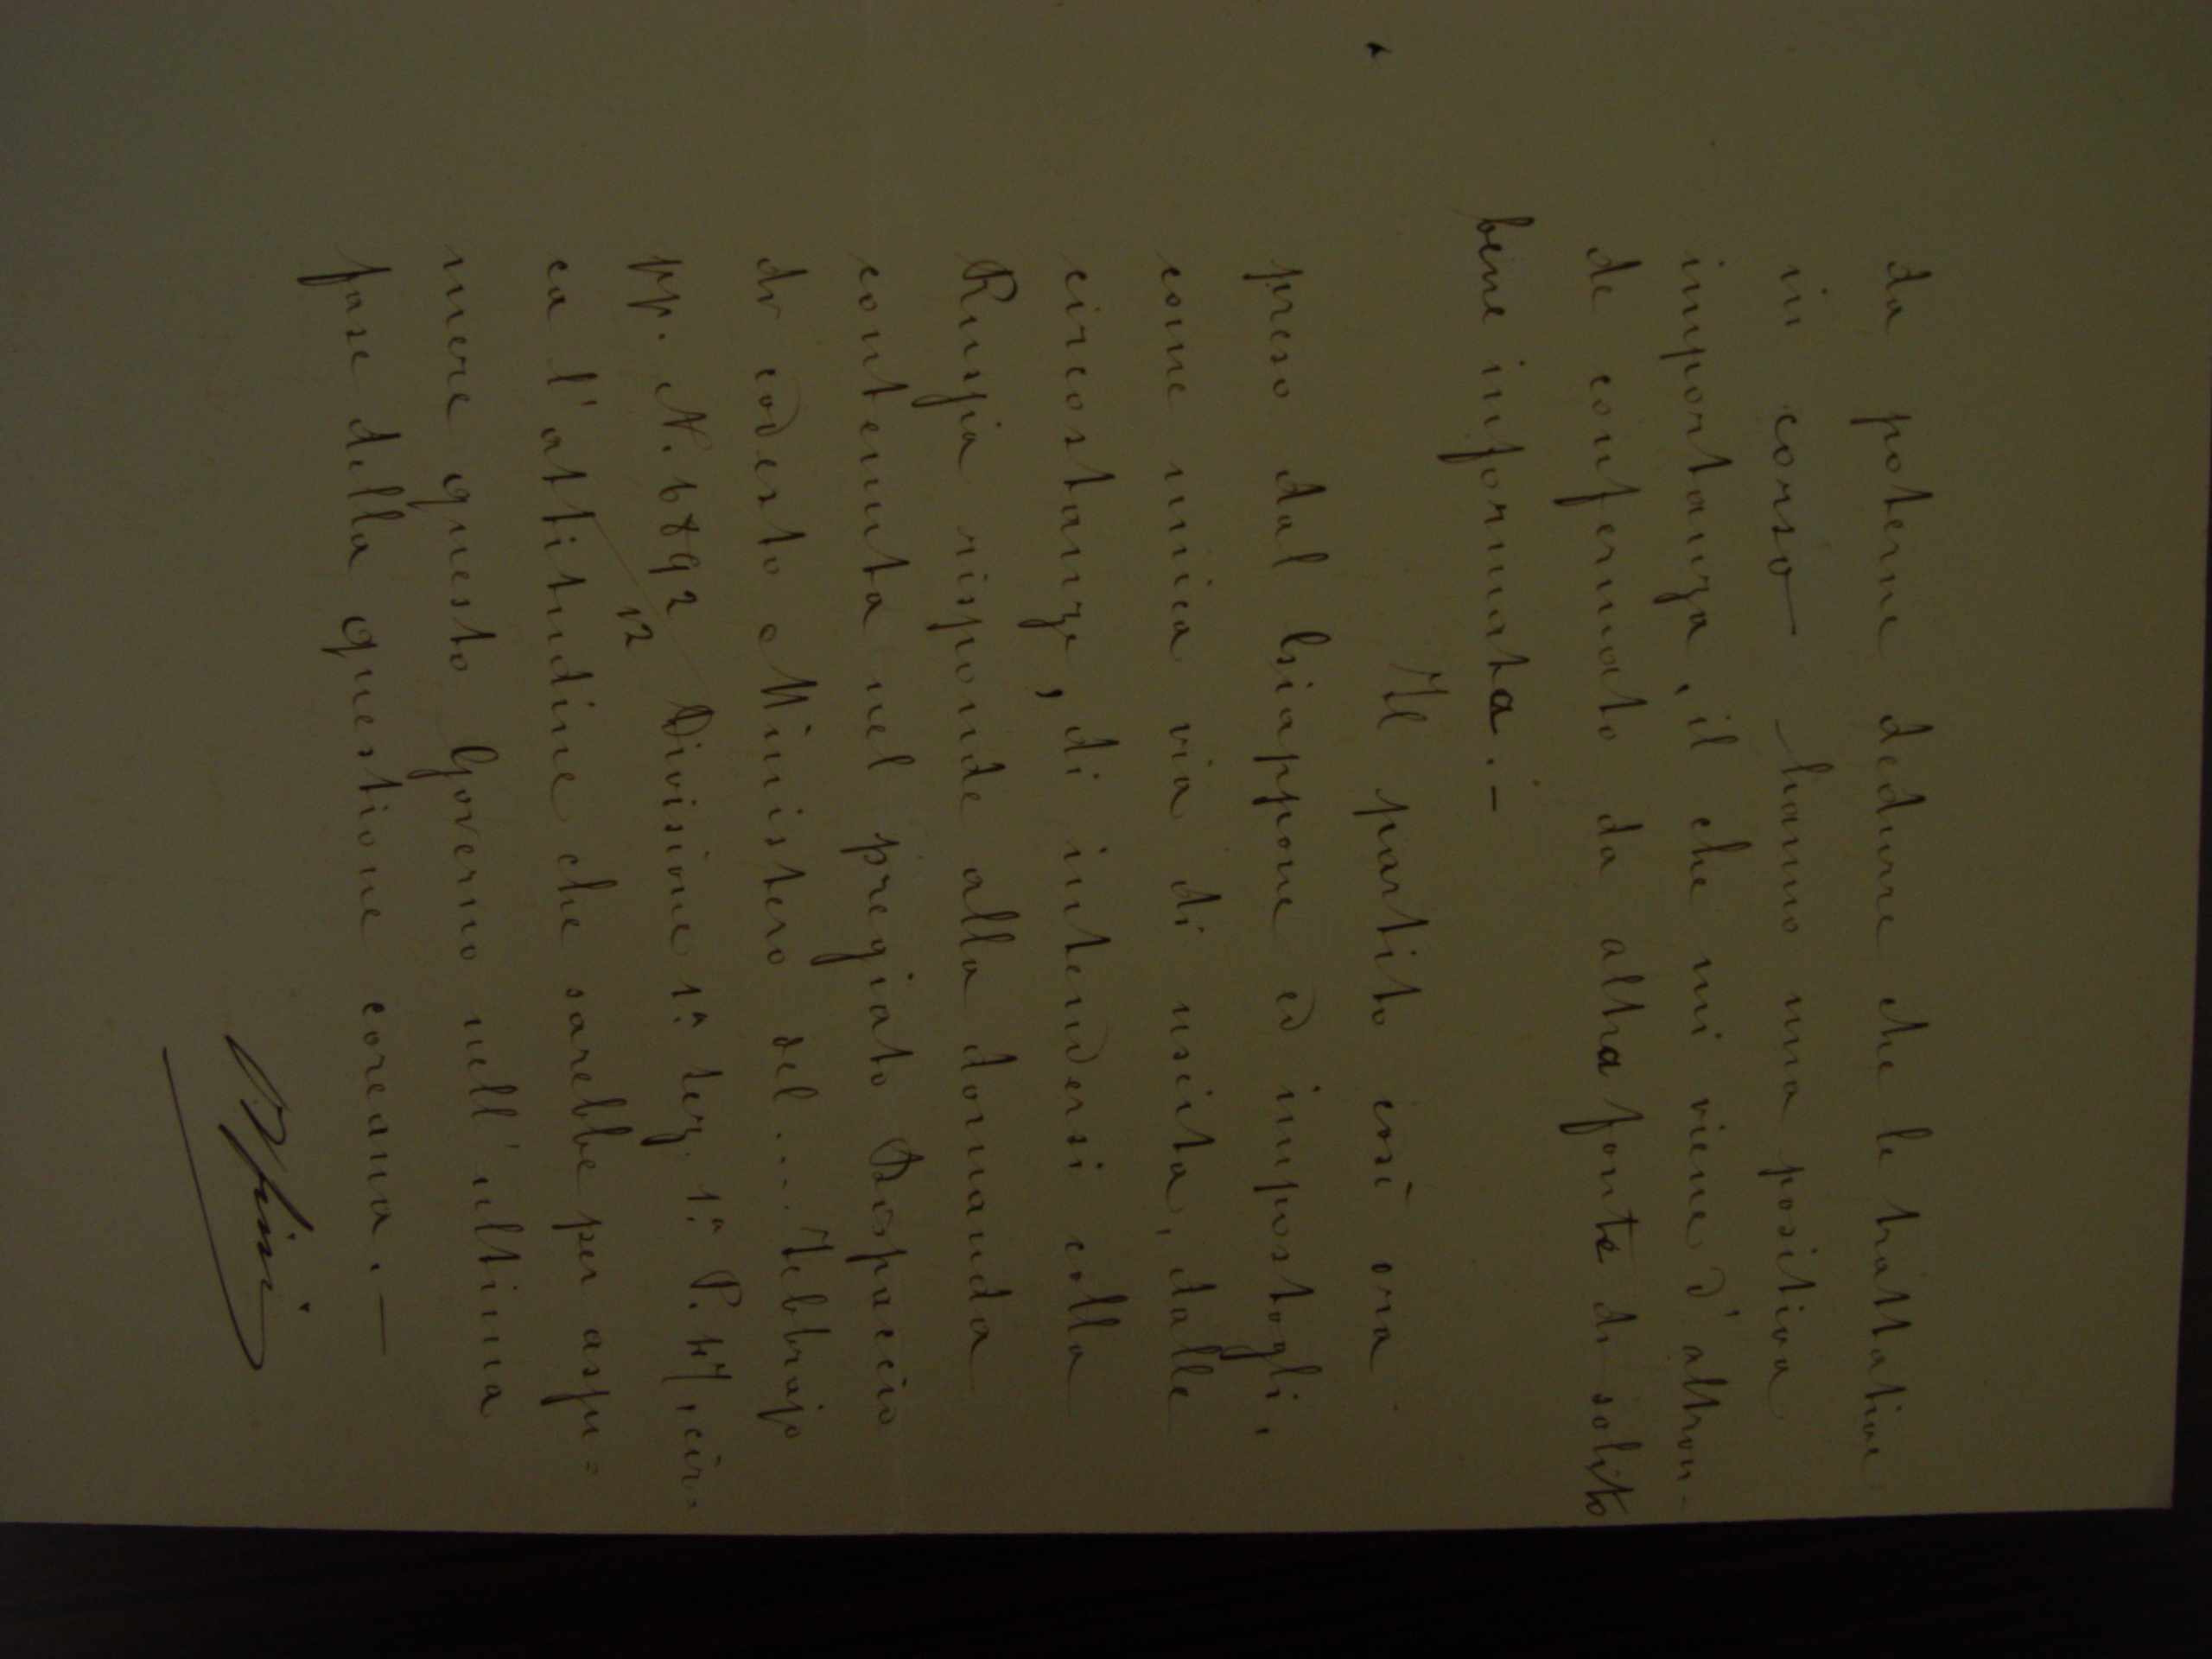 da poterne dedurre che le trattative
in corso hanno una positiva
importanza, il che mi viene d'altron-
de confermato da altra fonte di solito
bene informata. –
Il partito così ora
preso dal Giappone ed impostogli,
come unica via di uscita, dalle
circostanze, di intendersi colla
Russia risponde alla domanda
contenuta nel pregiato Dispaccio
di codesto Ministero del .... Febbrajo
pp. N. 6892/12 Divisione 1ª Sez. 1ª P. 47, cir=
ca l'attitudine che sarebbe per assu=
mere questo Governo nell'ultima
fase della questione coreana. —